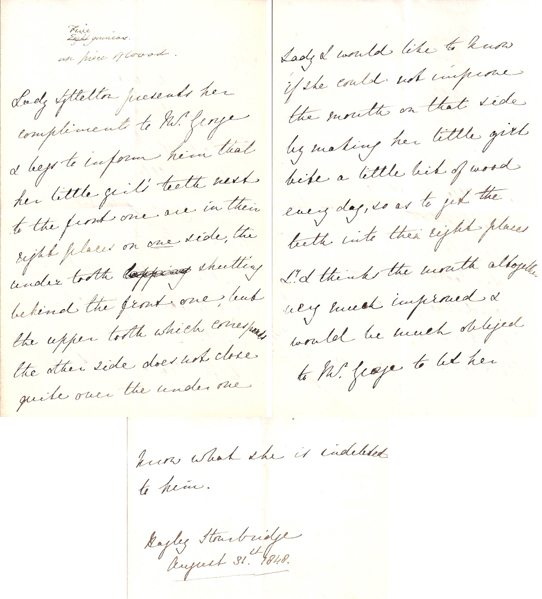 Five
guineas.
use piece of wood.
Lady Lyttelton presents her
compliments to Mr. George
& begs to inform him that
her little girl's teeth next
to the front one are in their
right places on one side, the
under tooth lapping shutting
behind the front one but
the upper tooth which corresponds
the other side does not close
quite over the under one
Lady L would like to know
if she could not improve
the mouth on that side
by making her little girl
bite a little bit of wood
every day, so as to get the
teeth into their right places
Ly. L thinks the mouth altogether
very much improved &
would be much obliged
to Mr. George to let her
know what she is indebted
to him.
Hagley Stourbridge
August 31st. 1848.